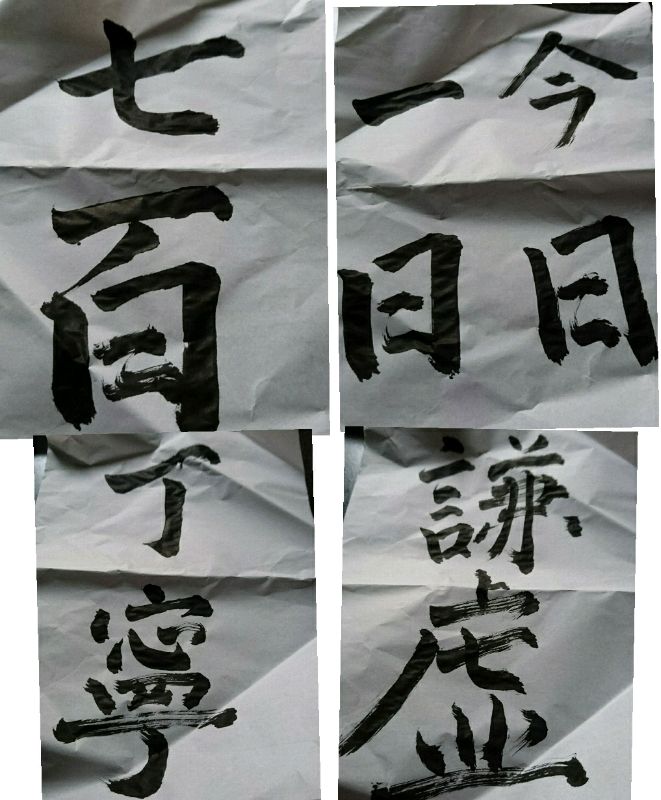 七百
今日
一日
丁寧
謙虚